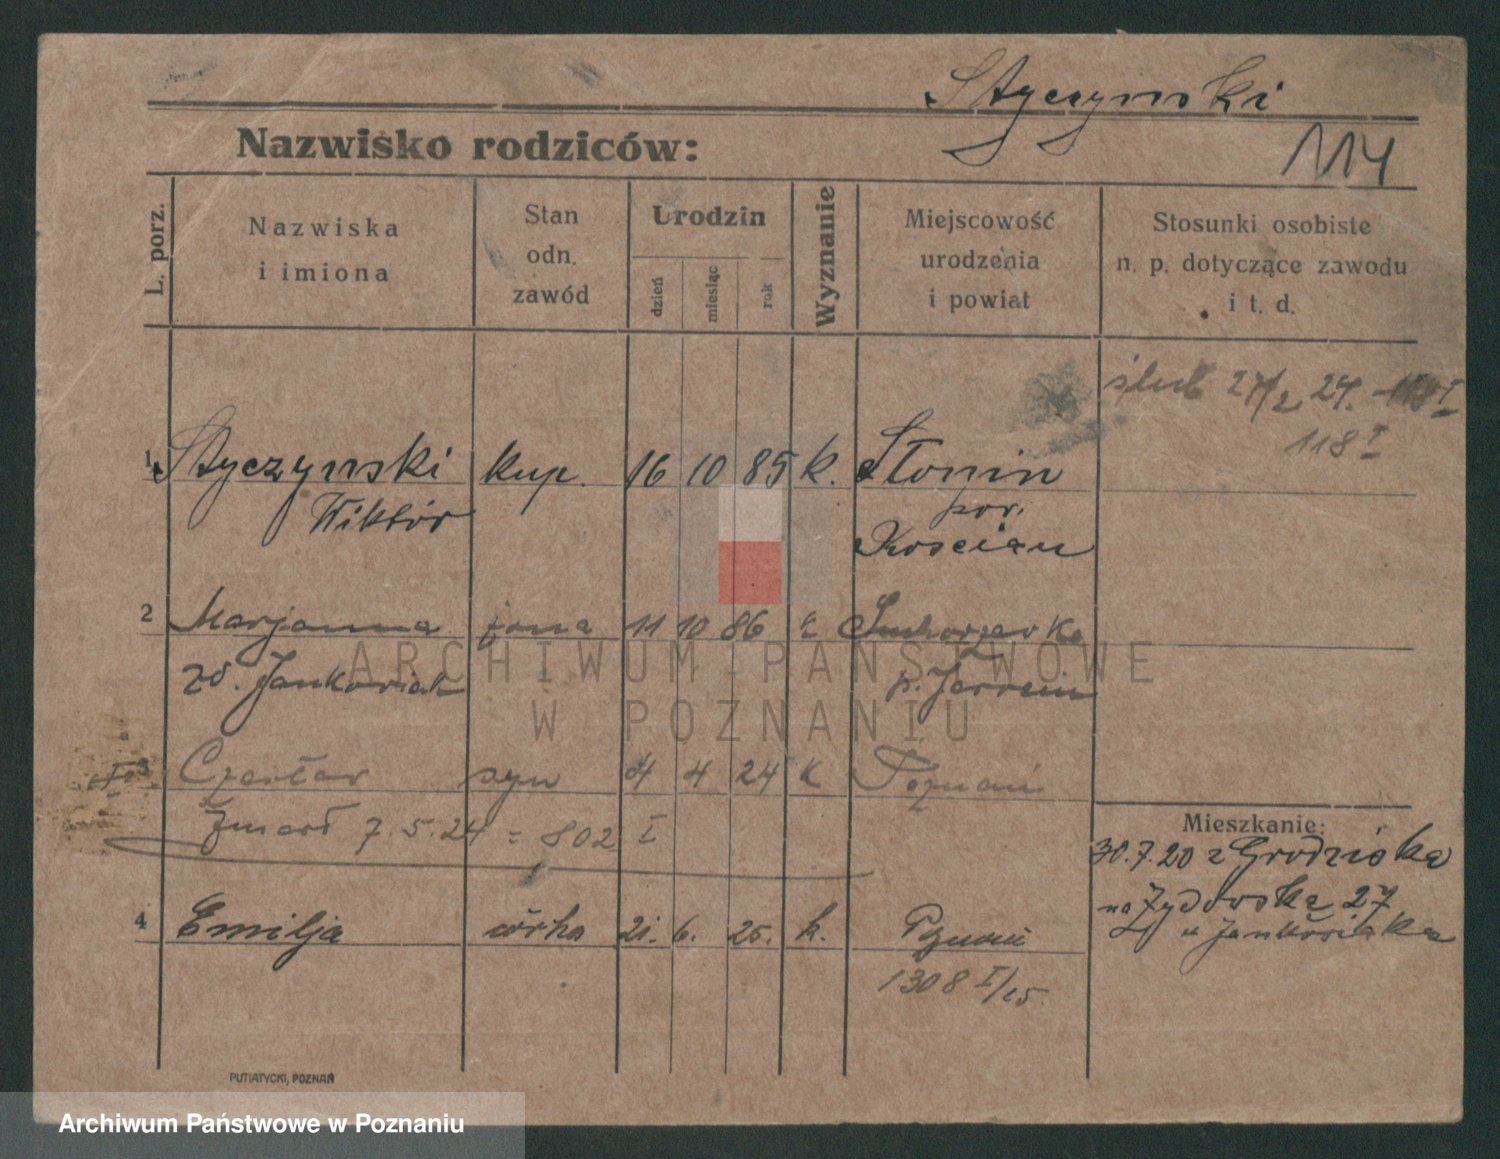 Styczynski
Nazwisko rodziców:
114
L. porz.
Nazwiska
i imiona
Stan
odn.
zawód
Urodzin
dzień
miesiąc
rok
Wyznanie
Miejscowość
urodzenia
i powiat
Stosunki osobiste
n. p. dotyczące zawodu
i t. d.
ślub 27/2 24.
118 I
1 Styczynski kup. 16 10 85 k. Słonin
Wiktór pow.
Koscian
2 Marjanna żona 11 10 86 k Suchorzewko
zd. Jankowiak p. Jarocin
ARCHIWUM PAŃSTWOWE
W POZNANIU
3 Czesław syn 4 4 24 k Poznań
Zmarł 7.5.24 = 802 I
Mieszkanie:
30.7.20 z Grodziska
na Żydowska 27
u Jankowiaka
4 Emilja córka 21. 6. 25. k. Poznań
1308 I/25
PUTIATYCKI, POZNAŃ
Archiwum Państwowe w Poznaniu